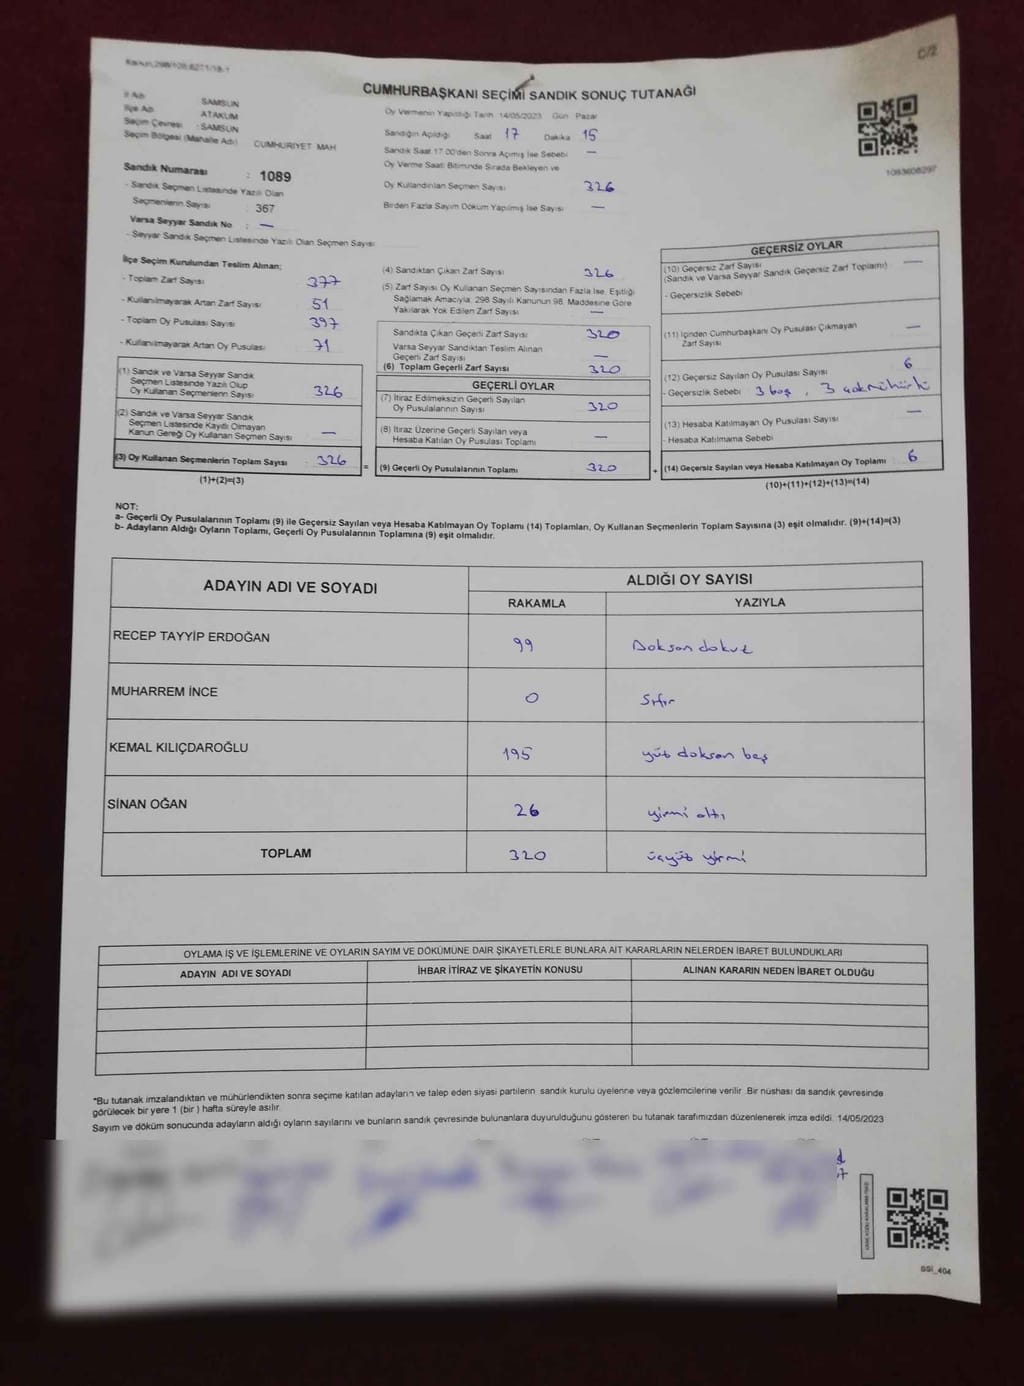 C/2
CUMHURBAŞKANI SEÇİMİ SANDIK SONUÇ TUTANAĞI
İl Adı SAMSUN
İlçe Adı ATAKUM
Seçim Çevresi : SAMSUN
Seçim Bölgesi (Mahalle Adı) CUMHURİYET MAH
Oy Vermenin Yapıldığı Tarih 14/05/2023 Gün Pazar
Sandığın Açıldığı Saat 17 Dakika 15
Sandık Saat 17.00'den Sonra Açımış İse Sebebi —
Oy Verme Saati Bitiminde Sırada Bekleyen ve
Oy Kullandırılan Seçmen Sayısı 326
Birden Fazla Sayım Döküm Yapılmış İse Sayısı —
1093608297
Sandık Numarası : 1089
- Sandık Seçmen Listesinde Yazılı Olan
Seçmenlerin Sayısı : 367
Varsa Seyyar Sandık No : —
- Seyyar Sandık Seçmen Listesinde Yazılı Olan Seçmen Sayısı
İlçe Seçim Kurulundan Teslim Alınan;
- Toplam Zarf Sayısı 377
- Kullanılmayarak Artan Zarf Sayısı 51
- Toplam Oy Pusulası Sayısı 397
- Kullanılmayarak Artan Oy Pusulası 71
(1) Sandık ve Varsa Seyyar Sandık
Seçmen Listesinde Yazılı Olup
Oy Kullanan Seçmenlerin Sayısı 326
(2) Sandık ve Varsa Seyyar Sandık
Seçmen Listesinde Kayıtlı Olmayan
Kanun Gereği Oy Kullanan Seçmen Sayısı —
(3) Oy Kullanan Seçmenlerin Toplam Sayısı : 326
(1)+(2)=(3)
(4) Sandıktan Çıkan Zarf Sayısı 326
(5) Zarf Sayısı Oy Kullanan Seçmen Sayısından Fazla İse, Eşitliği
Sağlamak Amacıyla, 298 Sayılı Kanunun 98. Maddesine Göre
Yakılarak Yok Edilen Zarf Sayısı —
Sandıkta Çıkan Geçerli Zarf Sayısı 320
Varsa Seyyar Sandıktan Teslim Alınan
Geçerli Zarf Sayısı —
(6) Toplam Geçerli Zarf Sayısı 320
GEÇERLİ OYLAR
(7) İtiraz Edilmeksizin Geçerli Sayılan
Oy Pusulalarının Sayısı 320
(8) İtiraz Üzerine Geçerli Sayılan veya
Hesaba Katılan Oy Pusulası Toplamı —
= (9) Geçerli Oy Pusulalarının Toplamı 320 +
GEÇERSİZ OYLAR
(10) Geçersiz Zarf Sayısı —
(Sandık ve Varsa Seyyar Sandık Geçersiz Zarf Toplamı)
- Geçersizlik Sebebi
(11) İçinden Cumhurbaşkanı Oy Pusulası Çıkmayan
Zarf Sayısı —
(12) Geçersiz Sayılan Oy Pusulası Sayısı 6
- Geçersizlik Sebebi 3 boş , 3 çok mühürlü
(13) Hesaba Katılmayan Oy Pusulası Sayısı —
- Hesaba Katılmama Sebebi
(14) Geçersiz Sayılan veya Hesaba Katılmayan Oy Toplamı 6
(10)+(11)+(12)+(13)=(14)
NOT:
a- Geçerli Oy Pusulalarının Toplamı (9) ile Geçersiz Sayılan veya Hesaba Katılmayan Oy Toplamı (14) Toplamları, Oy Kullanan Seçmenlerin Toplam Sayısına (3) eşit olmalıdır. (9)+(14)=(3)
b- Adayların Aldığı Oyların Toplamı, Geçerli Oy Pusulalarının Toplamına (9) eşit olmalıdır.
ADAYIN ADI VE SOYADI ALDIĞI OY SAYISI
RAKAMLA YAZIYLA
RECEP TAYYİP ERDOĞAN 99 Doksan dokuz
MUHARREM İNCE 0 Sıfır
KEMAL KILIÇDAROĞLU 195 yüz doksan beş
SİNAN OĞAN 26 yirmi altı
TOPLAM 320 üçyüz yirmi
OYLAMA İŞ VE İŞLEMLERİNE VE OYLARIN SAYIM VE DÖKÜMÜNE DAİR ŞİKAYETLERLE BUNLARA AİT KARARLARIN NELERDEN İBARET BULUNDUKLARI
ADAYIN ADI VE SOYADI İHBAR İTİRAZ VE ŞİKAYETİN KONUSU ALINAN KARARIN NEDEN İBARET OLDUĞU
*Bu tutanak imzalandıktan ve mühürlendikten sonra seçime katılan adayların ve talep eden siyasi partilerin sandık kurulu üyelerine veya gözlemcilerine verilir. Bir nüshası da sandık çevresinde
görülecek bir yere 1 (bir ) hafta süreyle asılır.
Sayım ve döküm sonucunda adayların aldığı oyların sayılarını ve bunların sandık çevresinde bulunanlara duyurulduğunu gösteren bu tutanak tarafımızdan düzenlenerek imza edildi. 14/05/2023
SSİ_404